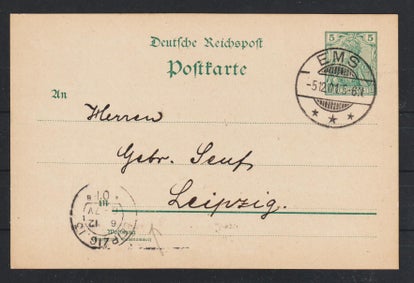 Deutsche Reichspost
Postkarte
5 5
EMS
-5.12.01.
An
Herren
Gebr. Senf,
Leipzig.
6 12
01